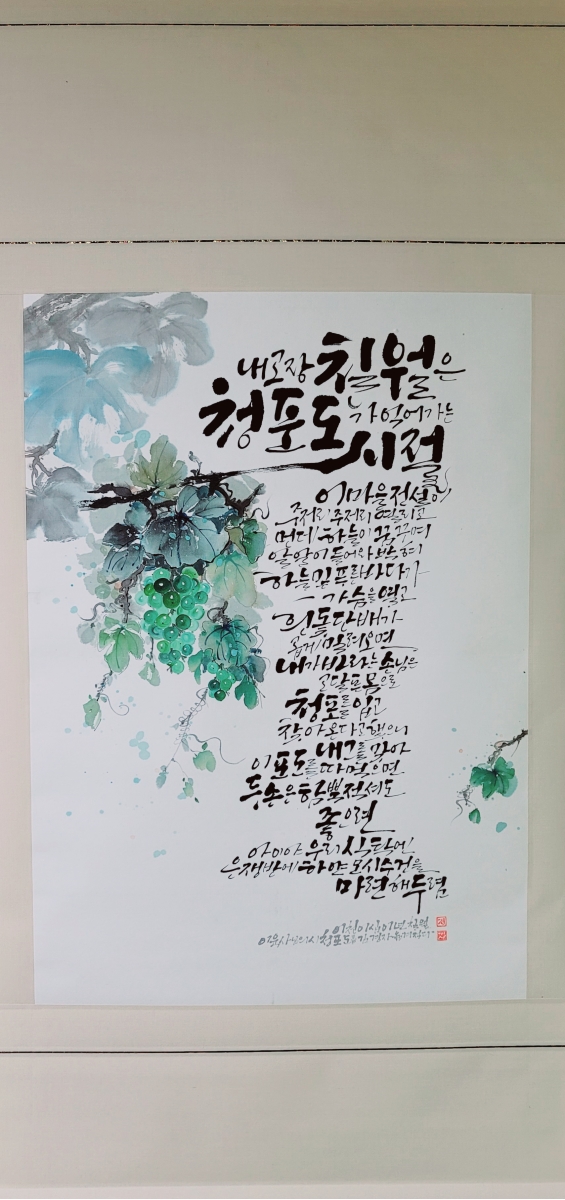 내고장 칠월은
청포도가 익어가는
시절
이마을전설이
주저리주저리 열리고
먼데 하늘이 꿈꾸며
알알이 들어와 박혀
하늘밑 푸른바다가
가슴을 열고
흰돛단배가
곱게 밀려오면
내가바라는손님은
고달픈몸으로
청포를입고
찾아온다고했으니
내그를맞아
이포도를 따먹으면
두손은함뿍적셔도
좋으련
아이야 우리식탁엔
은쟁반에 하얀모시수건을
마련해두렴
년칠월
이육사님의시 청포도를